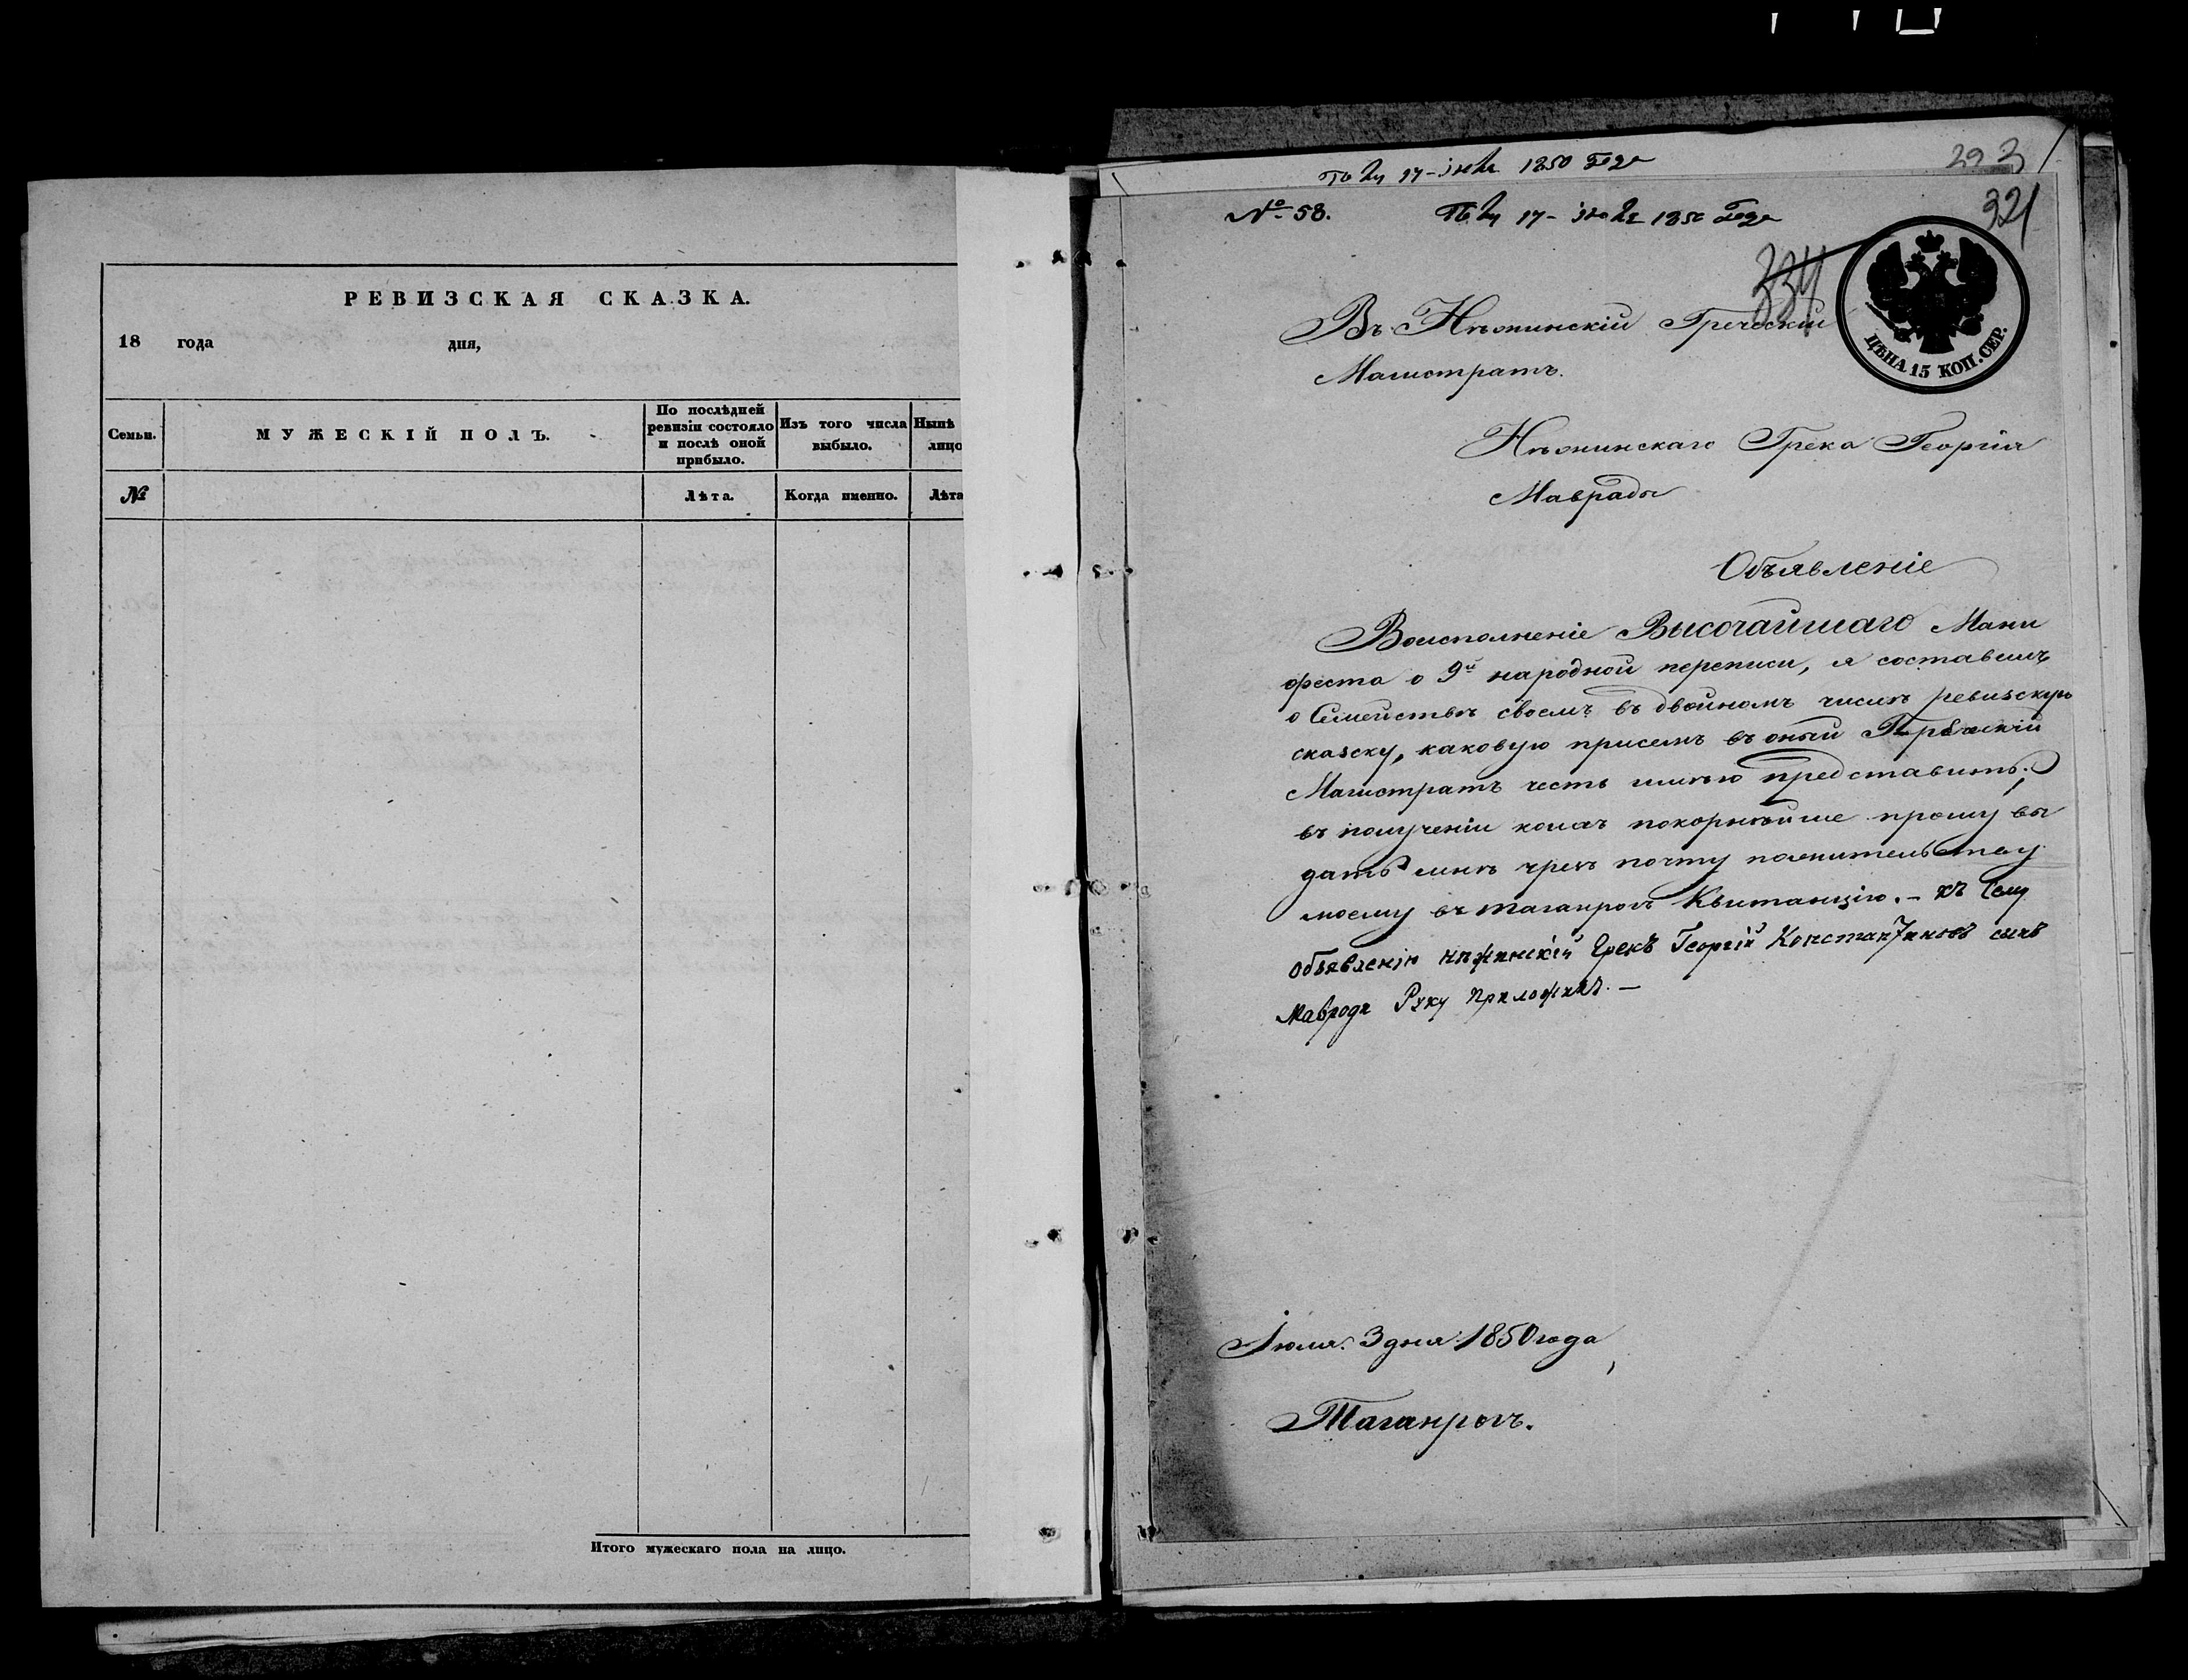 РЕВИЗСКАЯ СКАЗКА.
18 года дня,
Семьи.
МУЖЕСКІЙ ПОЛЪ.
По послѣдней
ревизіи состояло
и послѣ оной
прибыло.
Изъ того числа
выбыло.
Нынѣ
лицо
№
Лѣта.
Когда именно.
Лѣта
Итого мужескаго пола на лицо.
17- 1850 года
293
№ 58.
17- 1850 года
321
334
ЦѢНА 15 КОП. СЕР.
Въ Нѣжинскій Греческій
Магистратъ.
Нѣжинскаго Грека Георгія
Мавроды
Объявленіе
Воисполненіе Высочайшаго Мани
феста о 9й народной переписи, я составилъ
о Семействѣ своемъ въ двойномъ числѣ ревизскую
сказску, каковую присемъ въ оный Греческій
Магистратъ честь имѣю представить;
въ полученіи коихъ покорнѣйше прошу вы
дать мнѣ чрезъ почту
моему въ таганрогѣ Квитанцію. – къ сему
объявленію нѣжинскій Грекъ Георгій Константиновъ сынъ
Мавроди Руку приложилъ. –
Іюля 3 дня 1850 года
Таганрогъ.